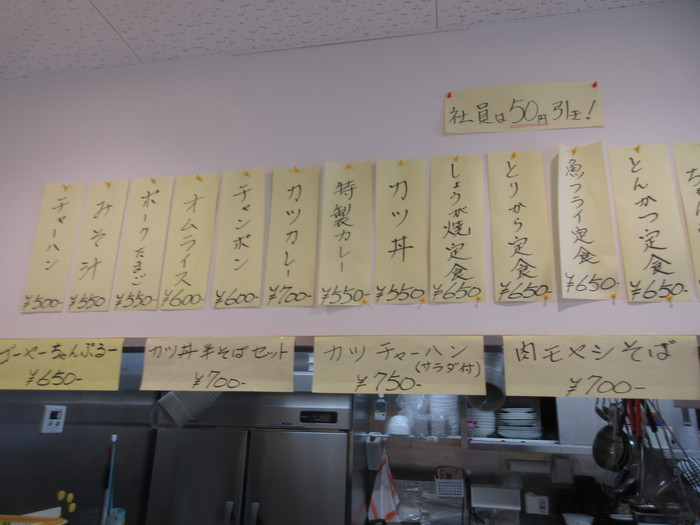 社員は50円引き!
とんかつ定食
¥650-
魚フライ定食
¥650-
とりから定食
¥650-
しょうが焼定食
¥650
カツ丼
¥550-
特製カレー
¥550-
カツカレー
¥700-
チャンポン
¥600-
オムライス
¥600-
ポークたまご
¥550-
みそ汁
¥550
チャーハン
¥500-
ゴーヤーちゃんぷるー
¥650-
カツ丼半そばセット
¥700-
カツチャーハン
(サラダ付)
¥750-
肉モヤシそば
¥700-